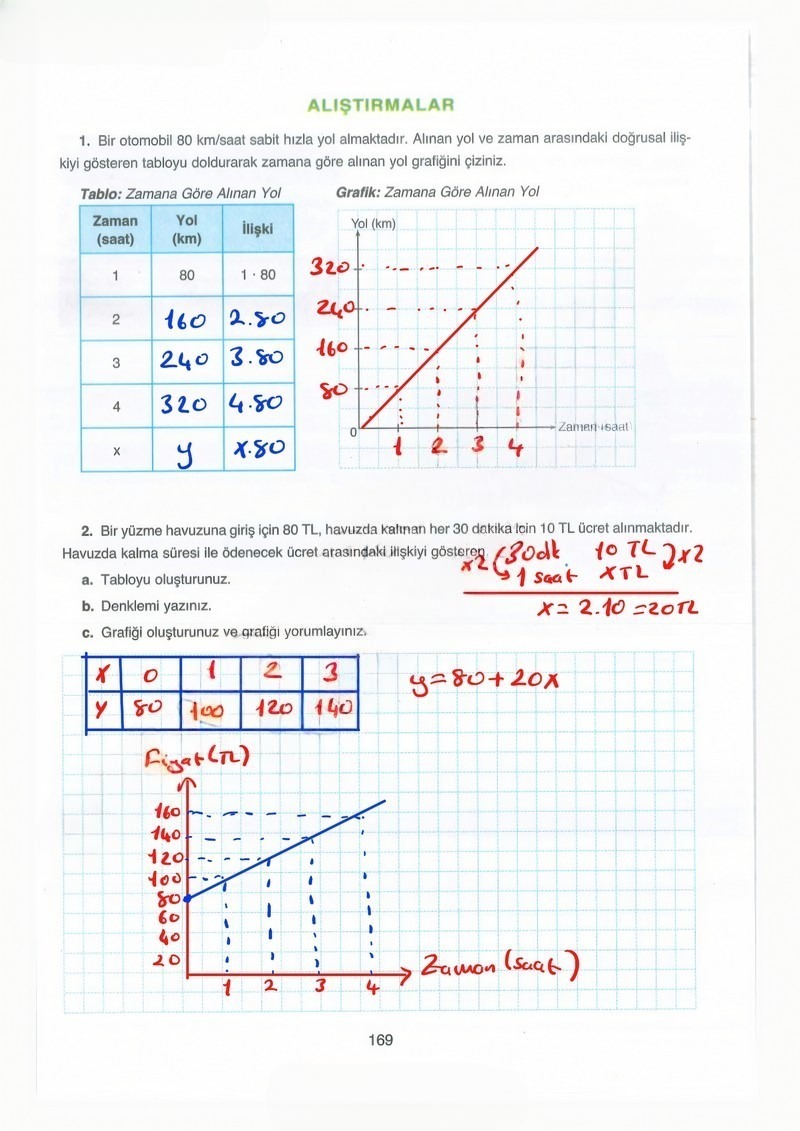 ALIŞTIRMALAR
1. Bir otomobil 80 km/saat sabit hızla yol almaktadır. Alınan yol ve zaman arasındaki doğrusal iliş-
kiyi gösteren tabloyu doldurarak zamana göre alınan yol grafiğini çiziniz.
Tablo: Zamana Göre Alınan Yol
Zaman (saat) Yol (km) İlişki
1 80 1 · 80
2 160 2.80
3 240 3.80
4 320 4.80
x y x.80
Grafik: Zamana Göre Alınan Yol
Yol (km)
320
240
160
80
0
Zaman (saat)
1 2 3 4
2. Bir yüzme havuzuna giriş için 80 TL, havuzda kalınan her 30 dakika için 10 TL ücret alınmaktadır.
Havuzda kalma süresi ile ödenecek ücret arasındaki ilişkiyi gösteren,
a. Tabloyu oluşturunuz.
b. Denklemi yazınız.
c. Grafiği oluşturunuz ve grafiği yorumlayınız.
x2 ( 30dk 10 TL ) x2
1 saat x TL
x = 2.10 = 20TL
x 0 1 2 3
y 80 100 120 140
y = 80 + 20x
Fiyat (TL)
160
140
120
100
80
60
40
20
1 2 3 4
Zaman (saat)
169